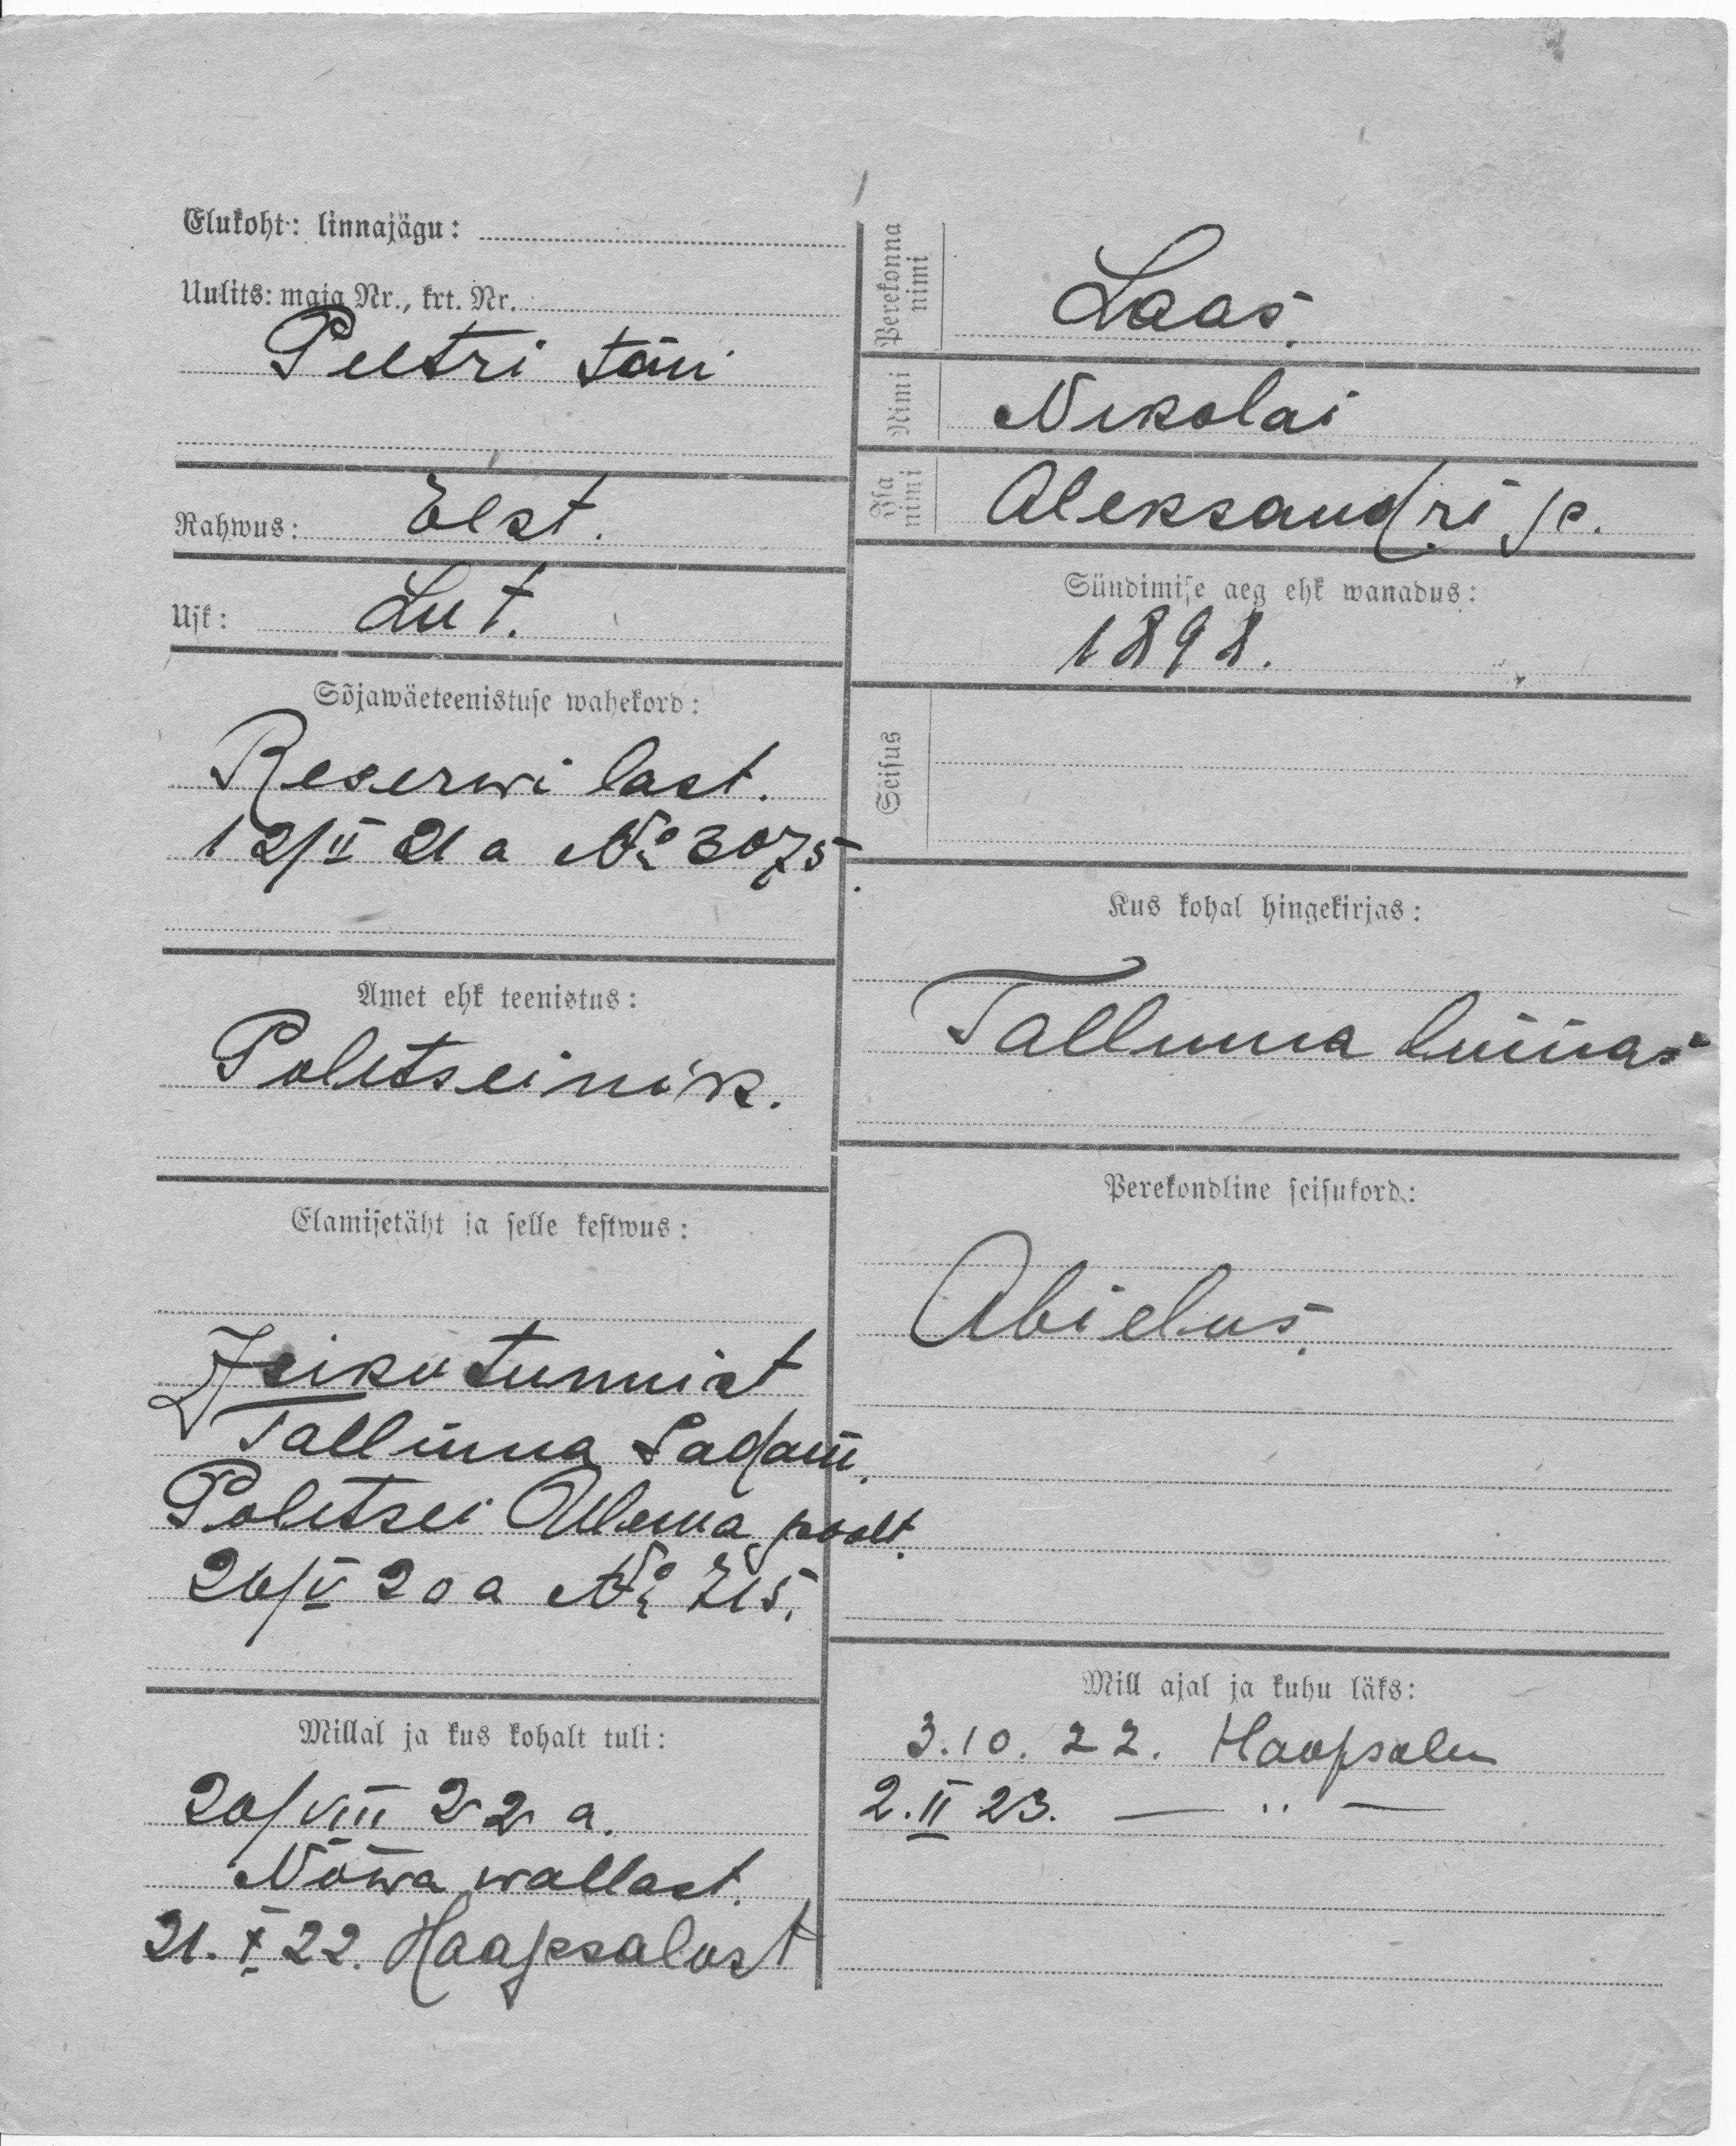 Elukoht: linnajägu:
Uulits: maja Nr., krt. Nr.
Peetri tän
Rahwus: Eest.
Usk: Lut.
Sõjawäeteenistuse wahekord:
Reserwi last.
12/II 21 a № 3075.
Amet ehk teenistus:
Politseinik.
Elamisetäht ja selle kestwus:
Isiku tunnist
Tallinna Sadam.
Politsei Ülema poolt.
26/V 20 a № 715.
Millal ja kus kohalt tuli:
20/VIII 22 a.
Nõwa wallast.
21. X 22. Haapsalust
Perekonna nimi
Laas.
Nimi
Nikolai
Isa nimi
Aleksandri p.
Sündimise aeg ehk wanadus:
1898.
Seisus
Kus kohal hingekirjas:
Tallinna linnas
Perekondline seisukord:
Abielus.
Mill ajal ja kuhu läks:
3.10.22. Haapsalu
2.II 23. — " —